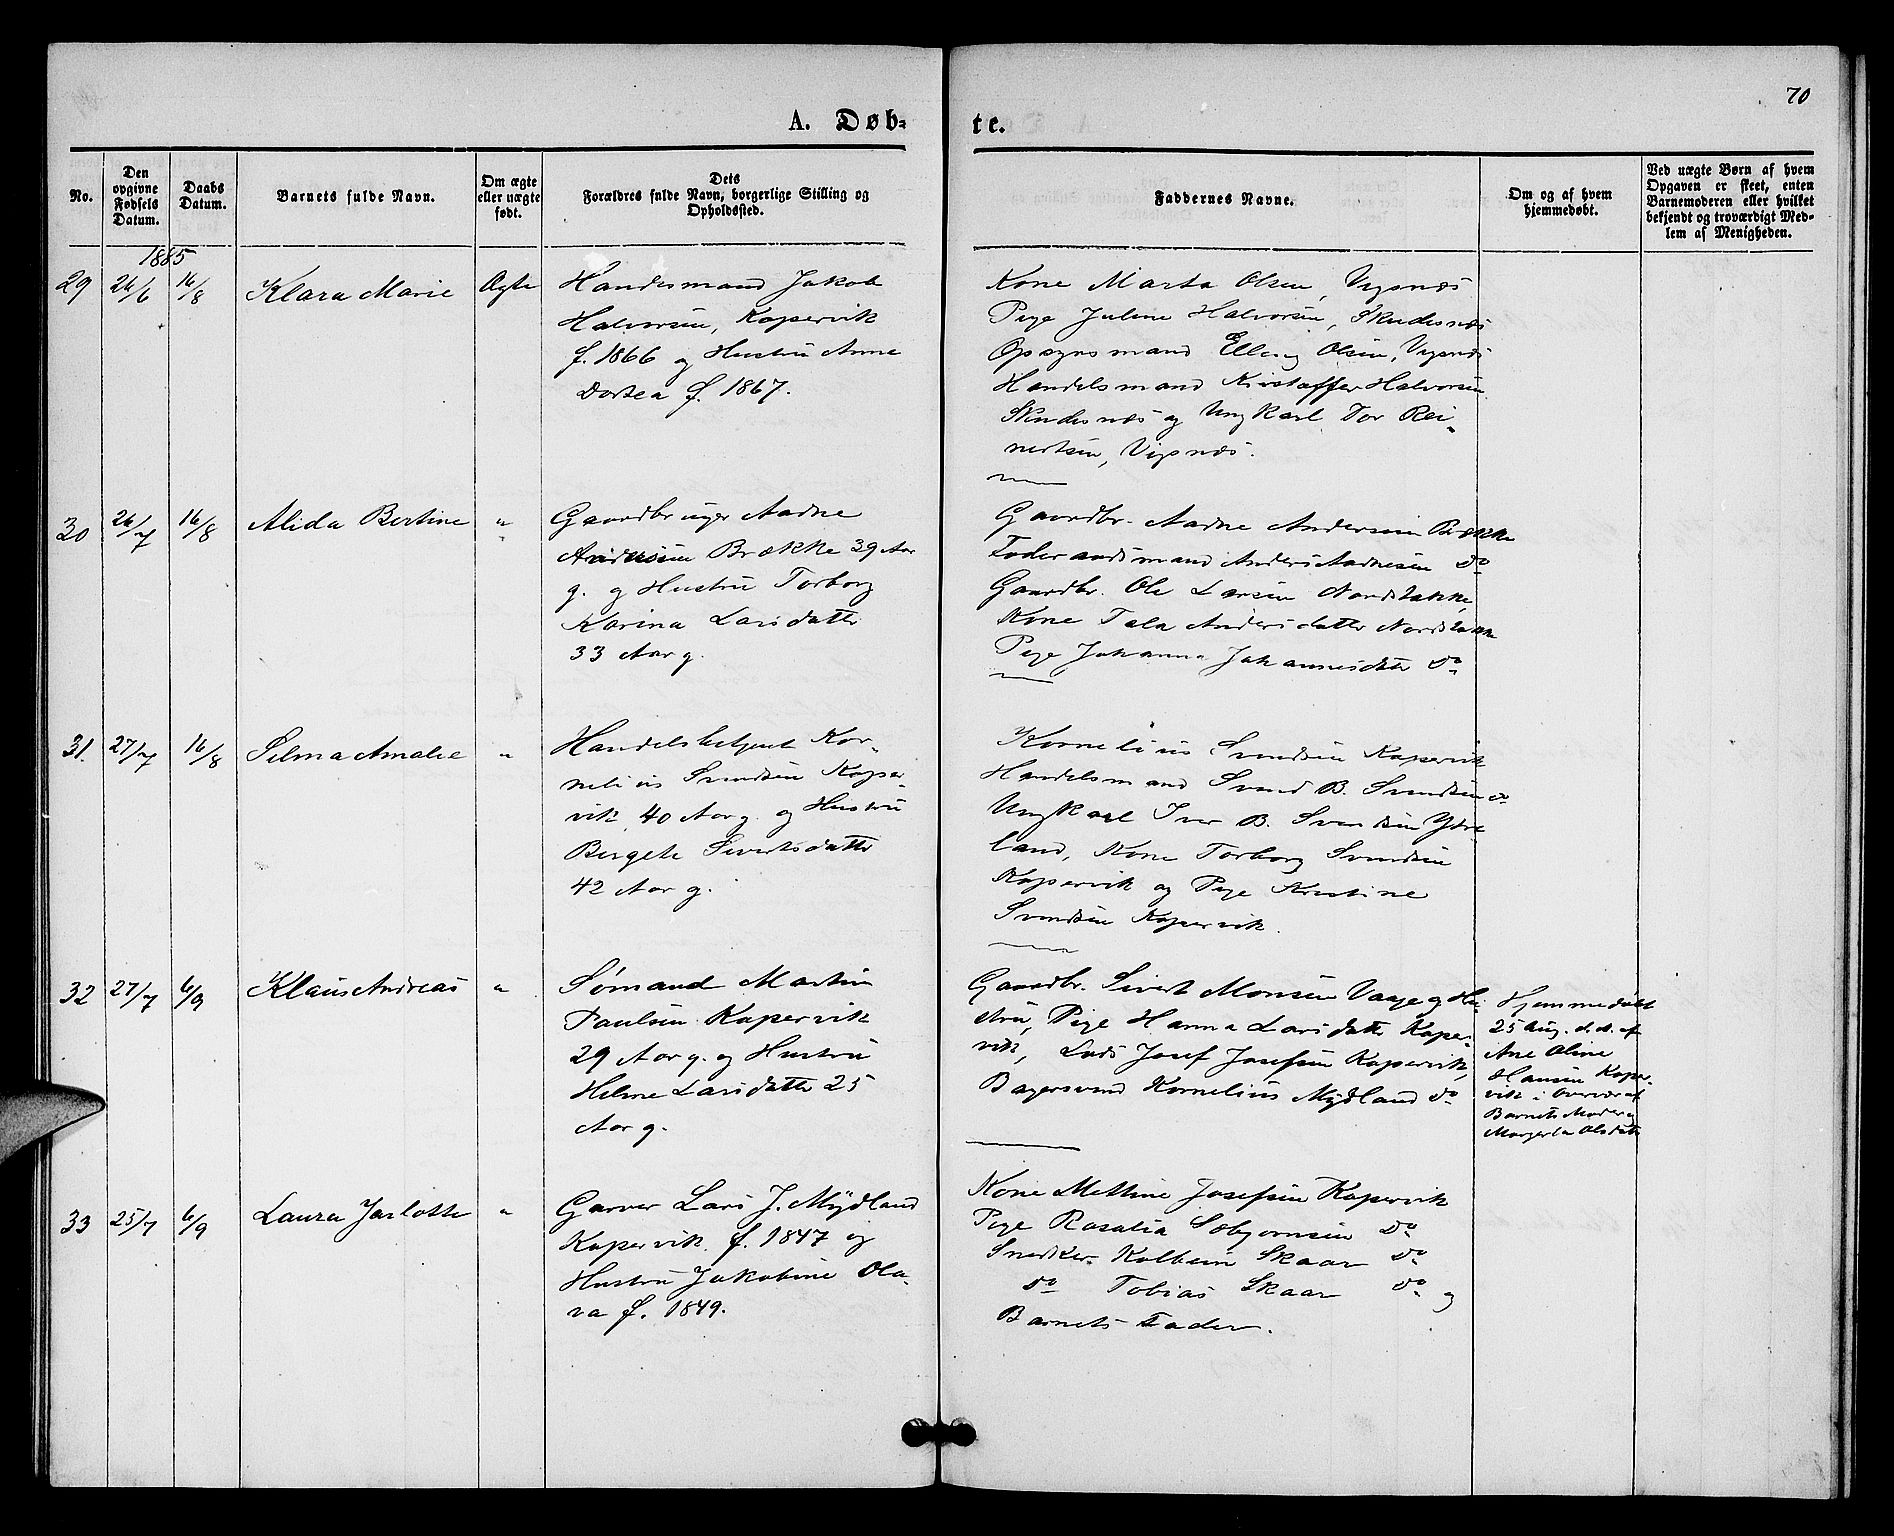 70
A. Døb-
te.
No.
Den opgivne Fødsels Datum.
Daabs Datum.
Barnets fulde Navn.
Om ægte eller uægte født.
Dets Forældres fulde Navn, borgerlige Stilling og Opholdssted.
Faddernes Navne.
Om og af hvem hjemmedøbt.
Ved uægte Børn af hvem Opgaven er skeet, enten Barnemoderen eller hvilket bekjendt og troværdigt Medlem af Menigheden.
1885
29 26/6 16/8 Klara Marie Ægte
Handesmand Jakob
Halvorsen, Kopervik
f. 1866 og Hustru Anne
Dortea f. 1867.
Kone Marta Olsen, Vigsnæs
Pige Juline Halvorsen, Skudesnæs
Opsynsmand Elling Olsen, Vigsnæs
Handelsmand Kristoffer Halvorsen
Skudesnæs og Ungkarl Tor Rei-
nertsen, Vigsnæs.
30 26/7 16/8 Alida Bertine "
Gaardbruger Aadne
Andersen Brække 39 Aar
g. og Hustru Torborg
Karina Larsdatter
33 Aar g.
Gaardbr. Aadne Andersen Brække
Foderaadsmand Anders Aadnesen do
Gaardbr. Ole Larsen Nordstokke
Kone Tala Andersdatter Nordstokke
Pige Johanna Johannesdatter do
31. 27/7 16/8 Selma Amalie "
Handelsbetjent Kor-
nelius Svendsen Koper-
vik 40 Aar g. og Hustru
Bergete Sivertsdatter
42 Aar g.
Kornelius Svendsen Kopervik
Handelsmand Svend B. Svendsen do
Ungkarl Iver B. Svendsen Ytre-
land, Kone Torborg Svendsen
Kopervik og Pige Kristine
Svendsen Kopervik.
32 27/7 6/9 Klaus Andreas "
Sømand Martin
Paulsen Kopervik
29 Aar g. og Hustru
Helene Larsdatter 25
Aar g.
Gaardbr. Sivert Monsen Vaage og Hu-
stru, Pige Hanna Larsdatter Koper-
vik, Lods Josef Josefsen Kopervik,
Bagersvend Kornelius Mydland do
Hjemmedøbt
25 Aug. d. A. af
Ane Oline
Hansen Koper-
vik i Overvær af
Barnets Moder og
Margreta Olsdatter
33 25/7 6/9 Laura Jarlotte "
Garver Lars J. Mydland
Kopervik f. 1847 og
Hustru Jakobine Ola-
va f. 1849.
Kone Mettine Josefsen Kopervik
Pige Rosalia Sæbjørnsen do
Snedker Kolbein Skaar do
do Tobias Skaar do og
Barnets Fader.